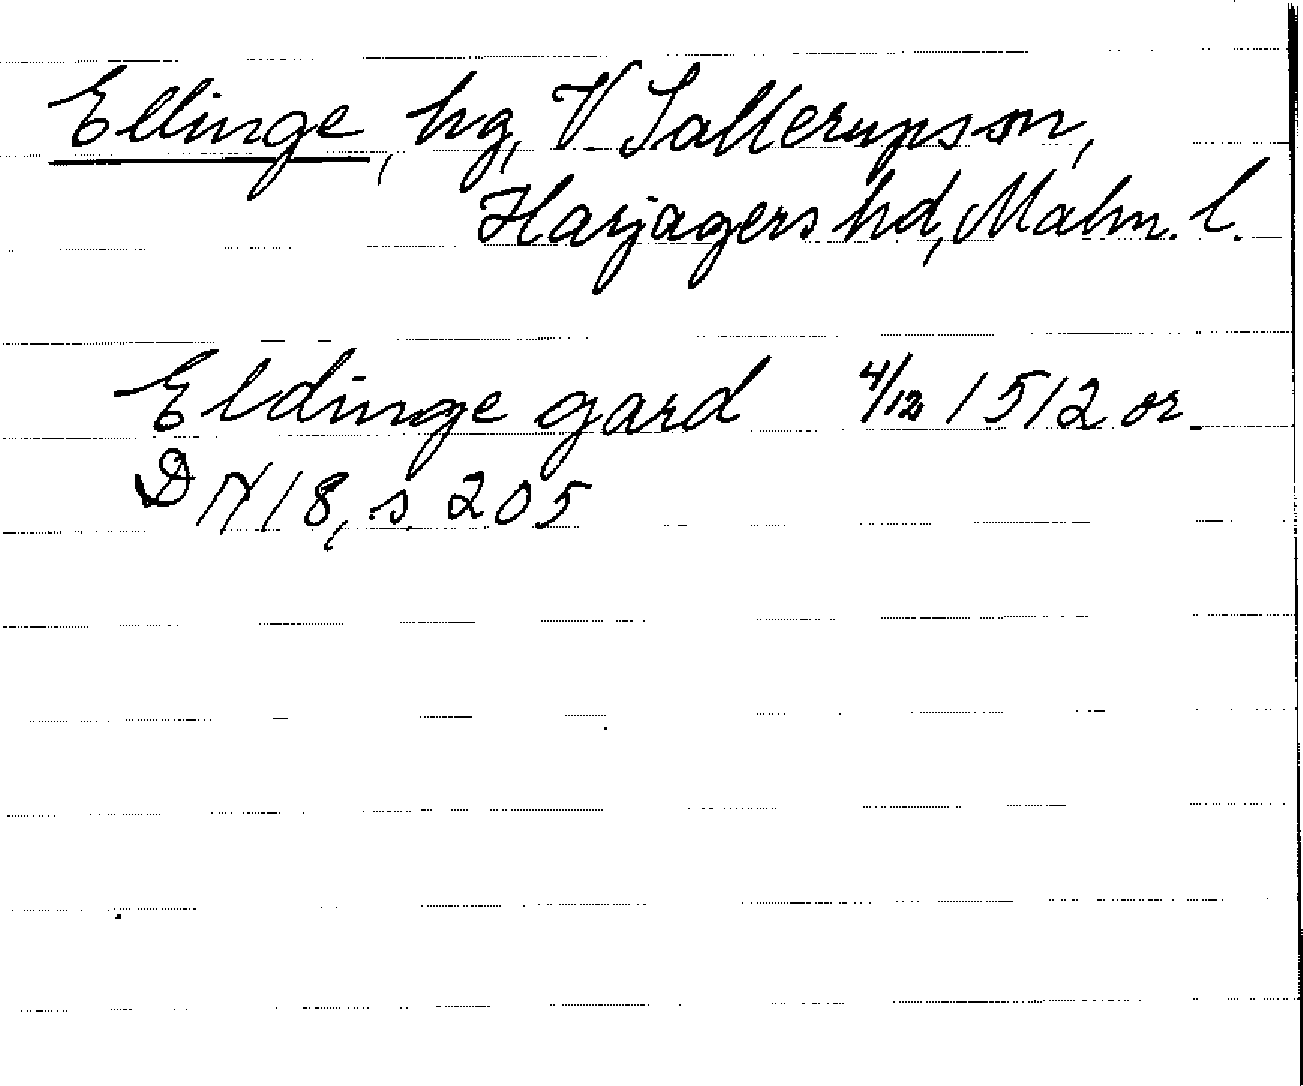 Ellinge, hg, V Sallerups sn,
Harjagers hd, Malm. l.
Eldinge gard 4/12 1512 or
DN 18, s. 205